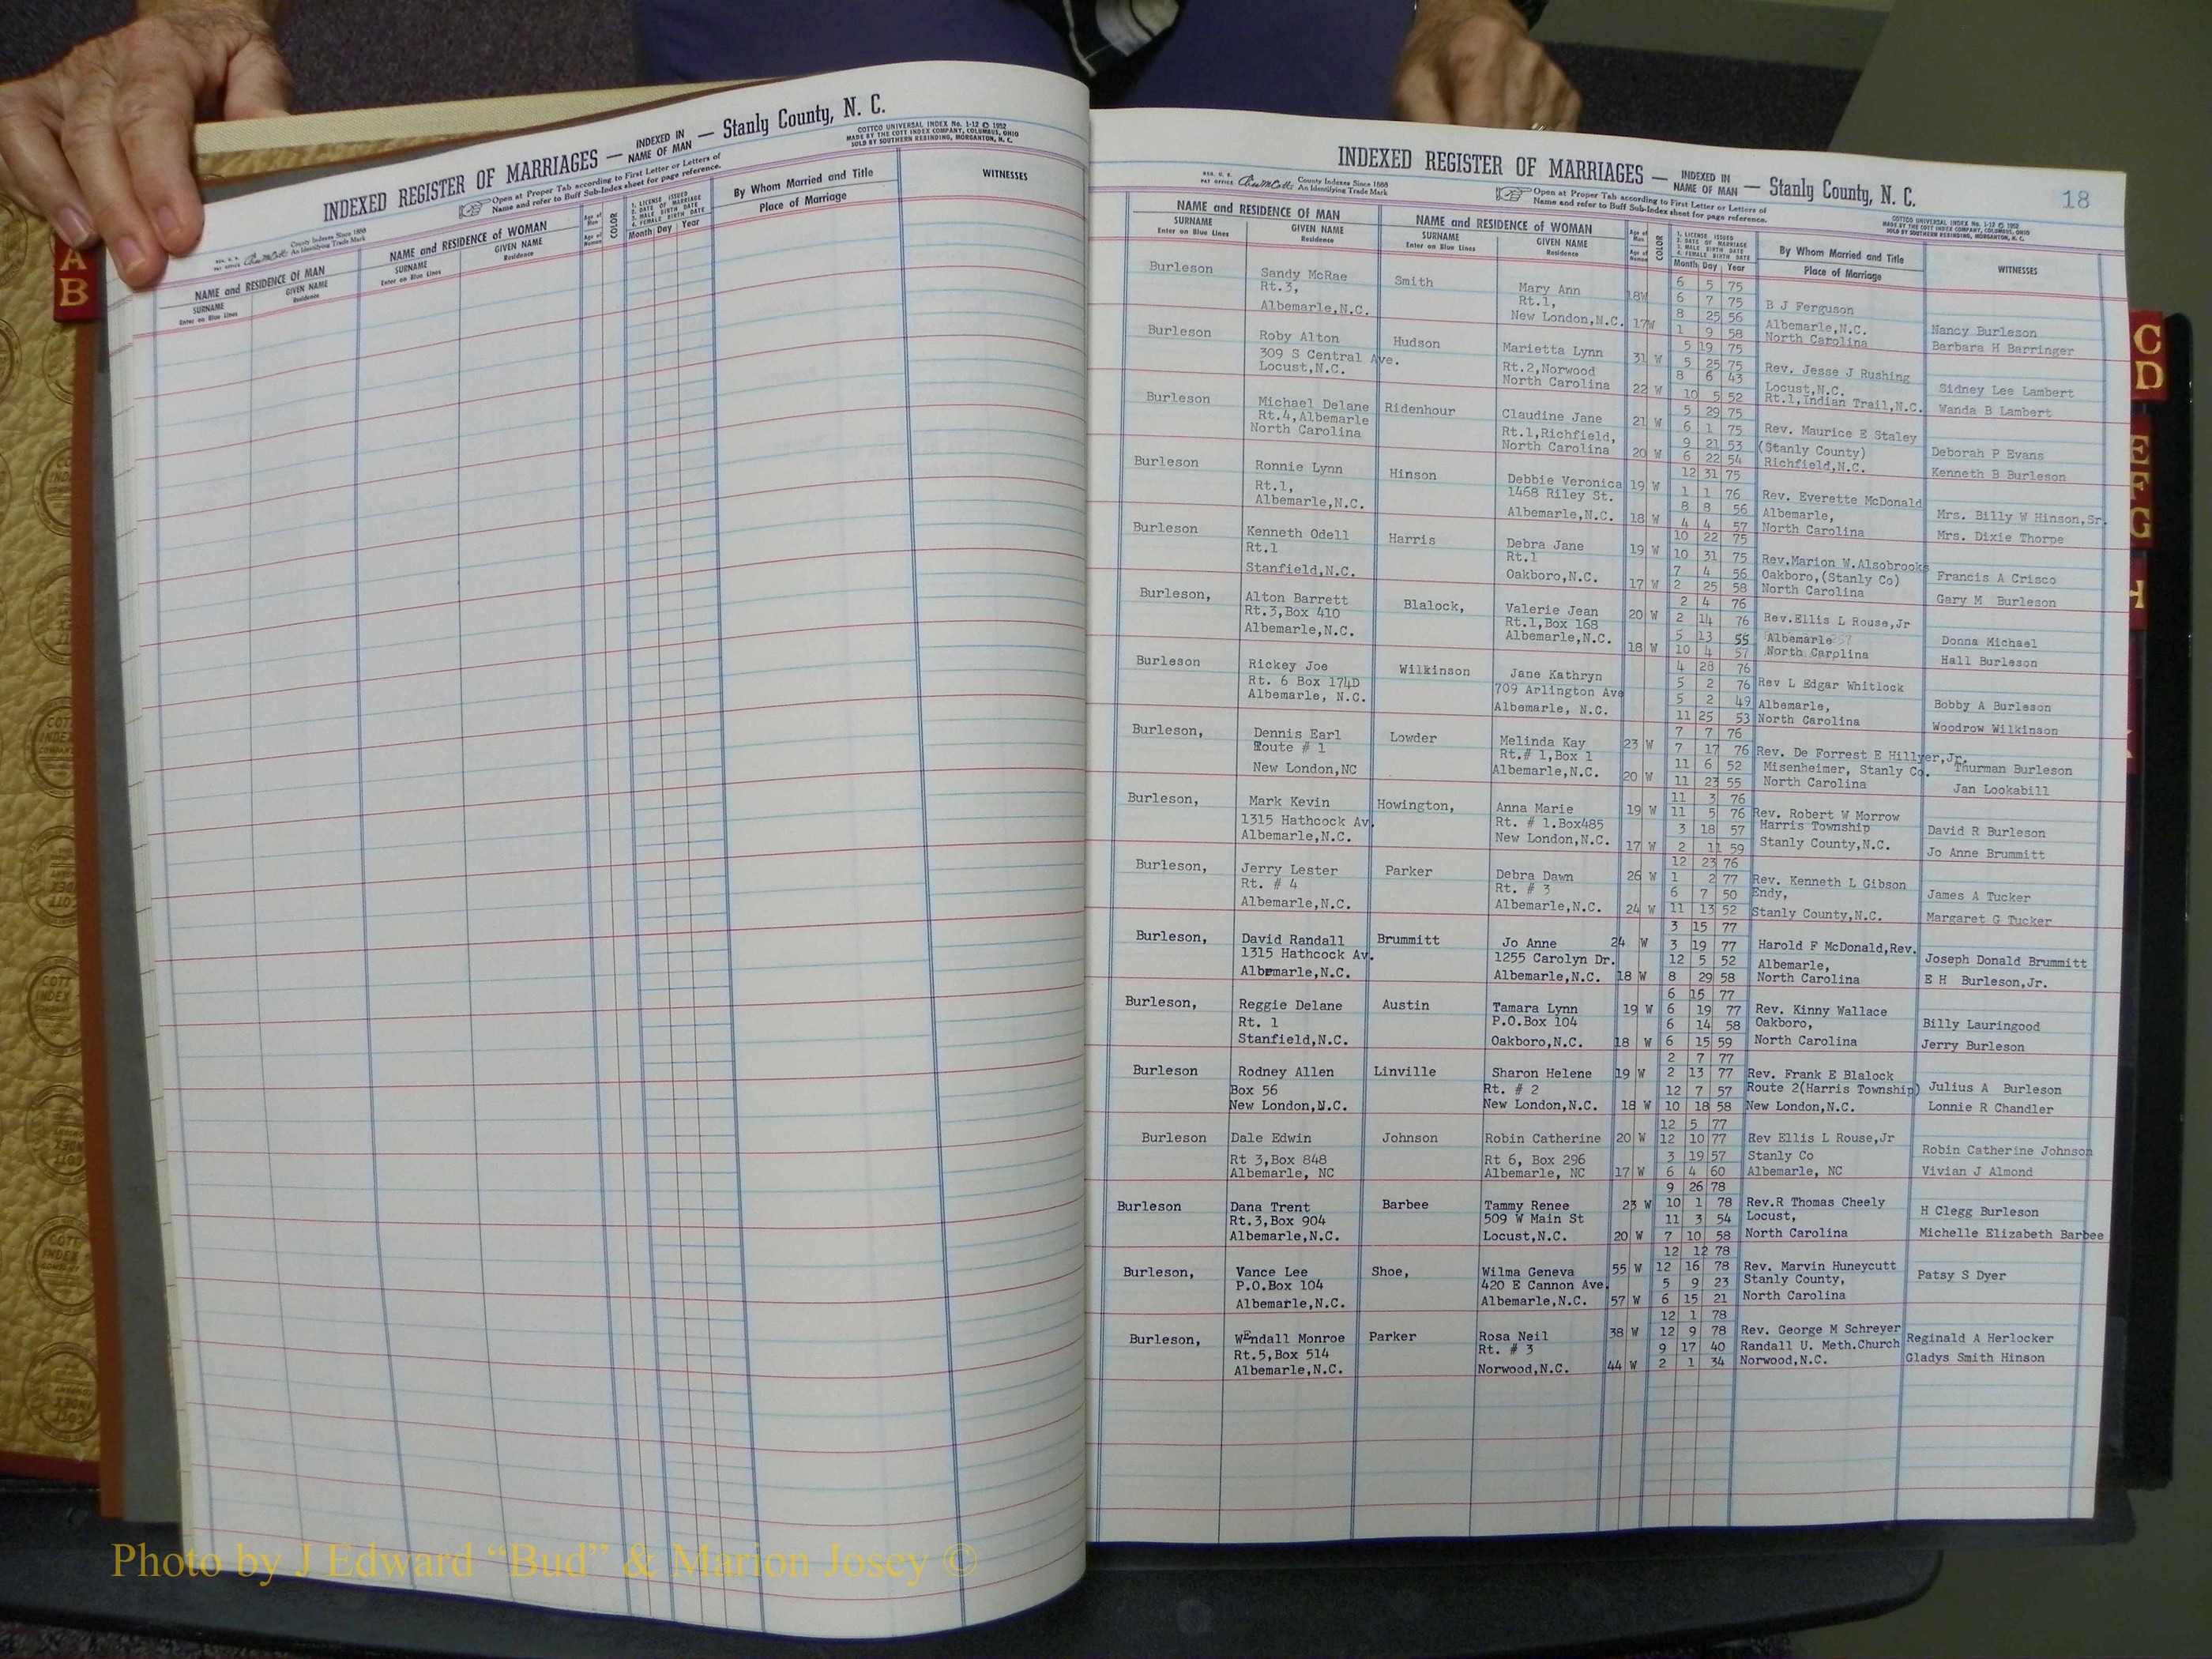 INDEXED REGISTER OF MARRIAGES — INDEXED IN NAME OF MAN — Stanly County, N. C.
Open at Proper Tab according to First Letter or Letters of
Name and refer to Buff Sub-Index sheet for page reference.
COTTCO UNIVERSAL INDEX No. 1-12 © 1952
MADE BY THE COTT INDEX COMPANY, COLUMBUS, OHIO
SOLD BY SOUTHERN REBINDING, MORGANTON, N. C.
County Indexes Since 1888
An Identifying Trade Mark
NAME and RESIDENCE OF MAN
SURNAME GIVEN NAME
Enter on Blue Lines Residence
NAME and RESIDENCE OF WOMAN
SURNAME GIVEN NAME
Enter on Blue Lines Residence
Age of Man
Age of Woman
COLOR
1. LICENSE ISSUED
2. DATE OF MARRIAGE
3. MALE BIRTH DATE
4. FEMALE BIRTH DATE
Month Day Year
By Whom Married and Title
Place of Marriage
WITNESSES
A
B
INDEXED REGISTER OF MARRIAGES — INDEXED IN NAME OF MAN — Stanly County, N. C.
18
County Indexes Since 1888
An Identifying Trade Mark
Open at Proper Tab according to First Letter or Letters of
Name and refer to Buff Sub-Index sheet for page reference.
COTTCO UNIVERSAL INDEX No. 1-12 © 1952
MADE BY THE COTT INDEX COMPANY, COLUMBUS, OHIO
SOLD BY SOUTHERN REBINDING, MORGANTON, N. C.
NAME and RESIDENCE OF MAN
SURNAME GIVEN NAME
Enter on Blue Lines Residence
NAME and RESIDENCE OF WOMAN
SURNAME GIVEN NAME
Enter on Blue Lines Residence
Age of Man
Age of Woman
COLOR
1. LICENSE ISSUED
2. DATE OF MARRIAGE
3. MALE BIRTH DATE
4. FEMALE BIRTH DATE
Month Day Year
By Whom Married and Title
Place of Marriage
WITNESSES
Burleson Sandy McRae Smith Mary Ann 18W 6 5 75
Rt.3, Rt.1, 6 7 75 B J Ferguson
Albemarle,N.C. New London,N.C. 8 25 56 Albemarle,N.C. Nancy Burleson
17W 1 9 58 North Carolina Barbara H Barringer
Burleson Roby Alton Hudson Marietta Lynn 31 W 5 19 75
309 S Central Ave. Rt.2,Norwood 5 25 75 Rev. Jesse J Rushing
Locust,N.C. North Carolina 8 6 43 Locust,N.C. Sidney Lee Lambert
22 W 10 5 52 Rt.1,Indian Trail,N.C. Wanda B Lambert
Burleson Michael Delane Ridenhour Claudine Jane 21 W 5 29 75
Rt.4,Albemarle Rt.1,Richfield, 6 1 75 Rev. Maurice E Staley
North Carolina North Carolina 9 21 53 (Stanly County) Deborah P Evans
20 W 6 22 54 Richfield,N.C. Kenneth B Burleson
Burleson Ronnie Lynn Hinson Debbie Veronica 19 W 12 31 75
Rt.1, 1468 Riley St. 1 1 76 Rev. Everette McDonald
Albemarle,N.C. Albemarle,N.C. 8 8 56 Albemarle, Mrs. Billy W Hinson,Sr.
18 W 4 4 57 North Carolina Mrs. Dixie Thorpe
Burleson Kenneth Odell Harris Debra Jane 19 W 10 22 75
Rt.1 Rt.1 10 31 75 Rev.Marion W.Alsobrooks
Stanfield,N.C. Oakboro,N.C. 7 4 56 Oakboro,(Stanly Co) Francis A Crisco
17 W 2 25 58 North Carolina Gary M Burleson
Burleson, Alton Barrett Blalock, Valerie Jean 20 W 2 4 76
Rt.3,Box 410 Rt.1,Box 168 2 14 76 Rev.Ellis L Rouse,Jr
Albemarle,N.C. Albemarle,N.C. 5 13 55 Albemarle Donna Michael
18 W 10 4 57 North Carplina Hall Burleson
Burleson Rickey Joe Wilkinson Jane Kathryn 4 28 76
Rt. 6 Box 174D 709 Arlington Ave 5 2 76 Rev L Edgar Whitlock
Albemarle, N.C. Albemarle, N.C. 5 2 49 Albemarle, Bobby A Burleson
11 25 53 North Carolina Woodrow Wilkinson
Burleson, Dennis Earl Lowder Melinda Kay 23 W 7 7 76
Route # 1 Rt.# 1,Box 1 7 17 76 Rev. De Forrest E Hillyer,Jr.
New London,NC Albemarle,N.C. 11 6 52 Misenheimer, Stanly Co. Thurman Burleson
20 W 11 23 55 North Carolina Jan Lookabill
Burleson, Mark Kevin Howington, Anna Marie 19 W 11 3 76
1315 Hathcock Av. Rt. # 1.Box485 11 5 76 Rev. Robert W Morrow
Albemarle,N.C. New London,N.C. 3 18 57 Harris Township David R Burleson
17 W 2 11 59 Stanly County,N.C. Jo Anne Brummitt
Burleson, Jerry Lester Parker Debra Dawn 26 W 12 23 76
Rt. # 4 Rt. # 3 1 2 77 Rev. Kenneth L Gibson
Albemarle,N.C. Albemarle,N.C. 6 7 50 Endy, James A Tucker
24 W 11 13 52 Stanly County,N.C. Margaret G Tucker
Burleson, David Randall Brummitt Jo Anne 24 W 3 15 77
1315 Hathcock Av. 1255 Carolyn Dr. 3 19 77 Harold F McDonald,Rev.
Albemarle,N.C. Albemarle,N.C. 12 5 52 Albemarle, Joseph Donald Brummitt
18 W 8 29 58 North Carolina E H Burleson,Jr.
Burleson, Reggie Delane Austin Tamara Lynn 19 W 6 15 77
Rt. 1 P.O.Box 104 6 19 77 Rev. Kinny Wallace
Stanfield,N.C. Oakboro,N.C. 6 14 58 Oakboro, Billy Lauringood
18 W 6 15 59 North Carolina Jerry Burleson
Burleson Rodney Allen Linville Sharon Helene 19 W 2 7 77
Box 56 Rt. # 2 2 13 77 Rev. Frank E Blalock
New London,N.C. New London,N.C. 12 7 57 Route 2(Harris Township) Julius A Burleson
18 W 10 18 58 New London,N.C. Lonnie R Chandler
Burleson Dale Edwin Johnson Robin Catherine 20 W 12 5 77
Rt 3,Box 848 Rt 6, Box 296 12 10 77 Rev Ellis L Rouse,Jr
Albemarle, NC Albemarle, NC 3 19 57 Stanly Co Robin Catherine Johnson
17 W 6 4 60 Albemarle, NC Vivian J Almond
Burleson Dana Trent Barbee Tammy Renee 23 W 9 26 78
Rt.3,Box 904 509 W Main St 10 1 78 Rev.R Thomas Cheely
Albemarle,N.C. Locust,N.C. 11 3 54 Locust, H Clegg Burleson
20 W 7 10 58 North Carolina Michelle Elizabeth Barbee
Burleson, Vance Lee Shoe, Wilma Geneva 55 W 12 12 78
P.O.Box 104 420 E Cannon Ave. 12 16 78 Rev. Marvin Huneycutt
Albemarle,N.C. Albemarle,N.C. 5 9 23 Stanly County, Patsy S Dyer
57 W 6 15 21 North Carolina
Burleson, Wendall Monroe Parker Rosa Neil 38 W 12 1 78
Rt.5,Box 514 Rt. # 3 12 9 78 Rev. George M Schreyer
Albemarle,N.C. Norwood,N.C. 9 17 40 Randall U. Meth.Church Reginald A Herlocker
44 W 2 1 34 Norwood,N.C. Gladys Smith Hinson
C
D
E
F
G
H
Photo by J Edward “Bud” & Marion Josey ©